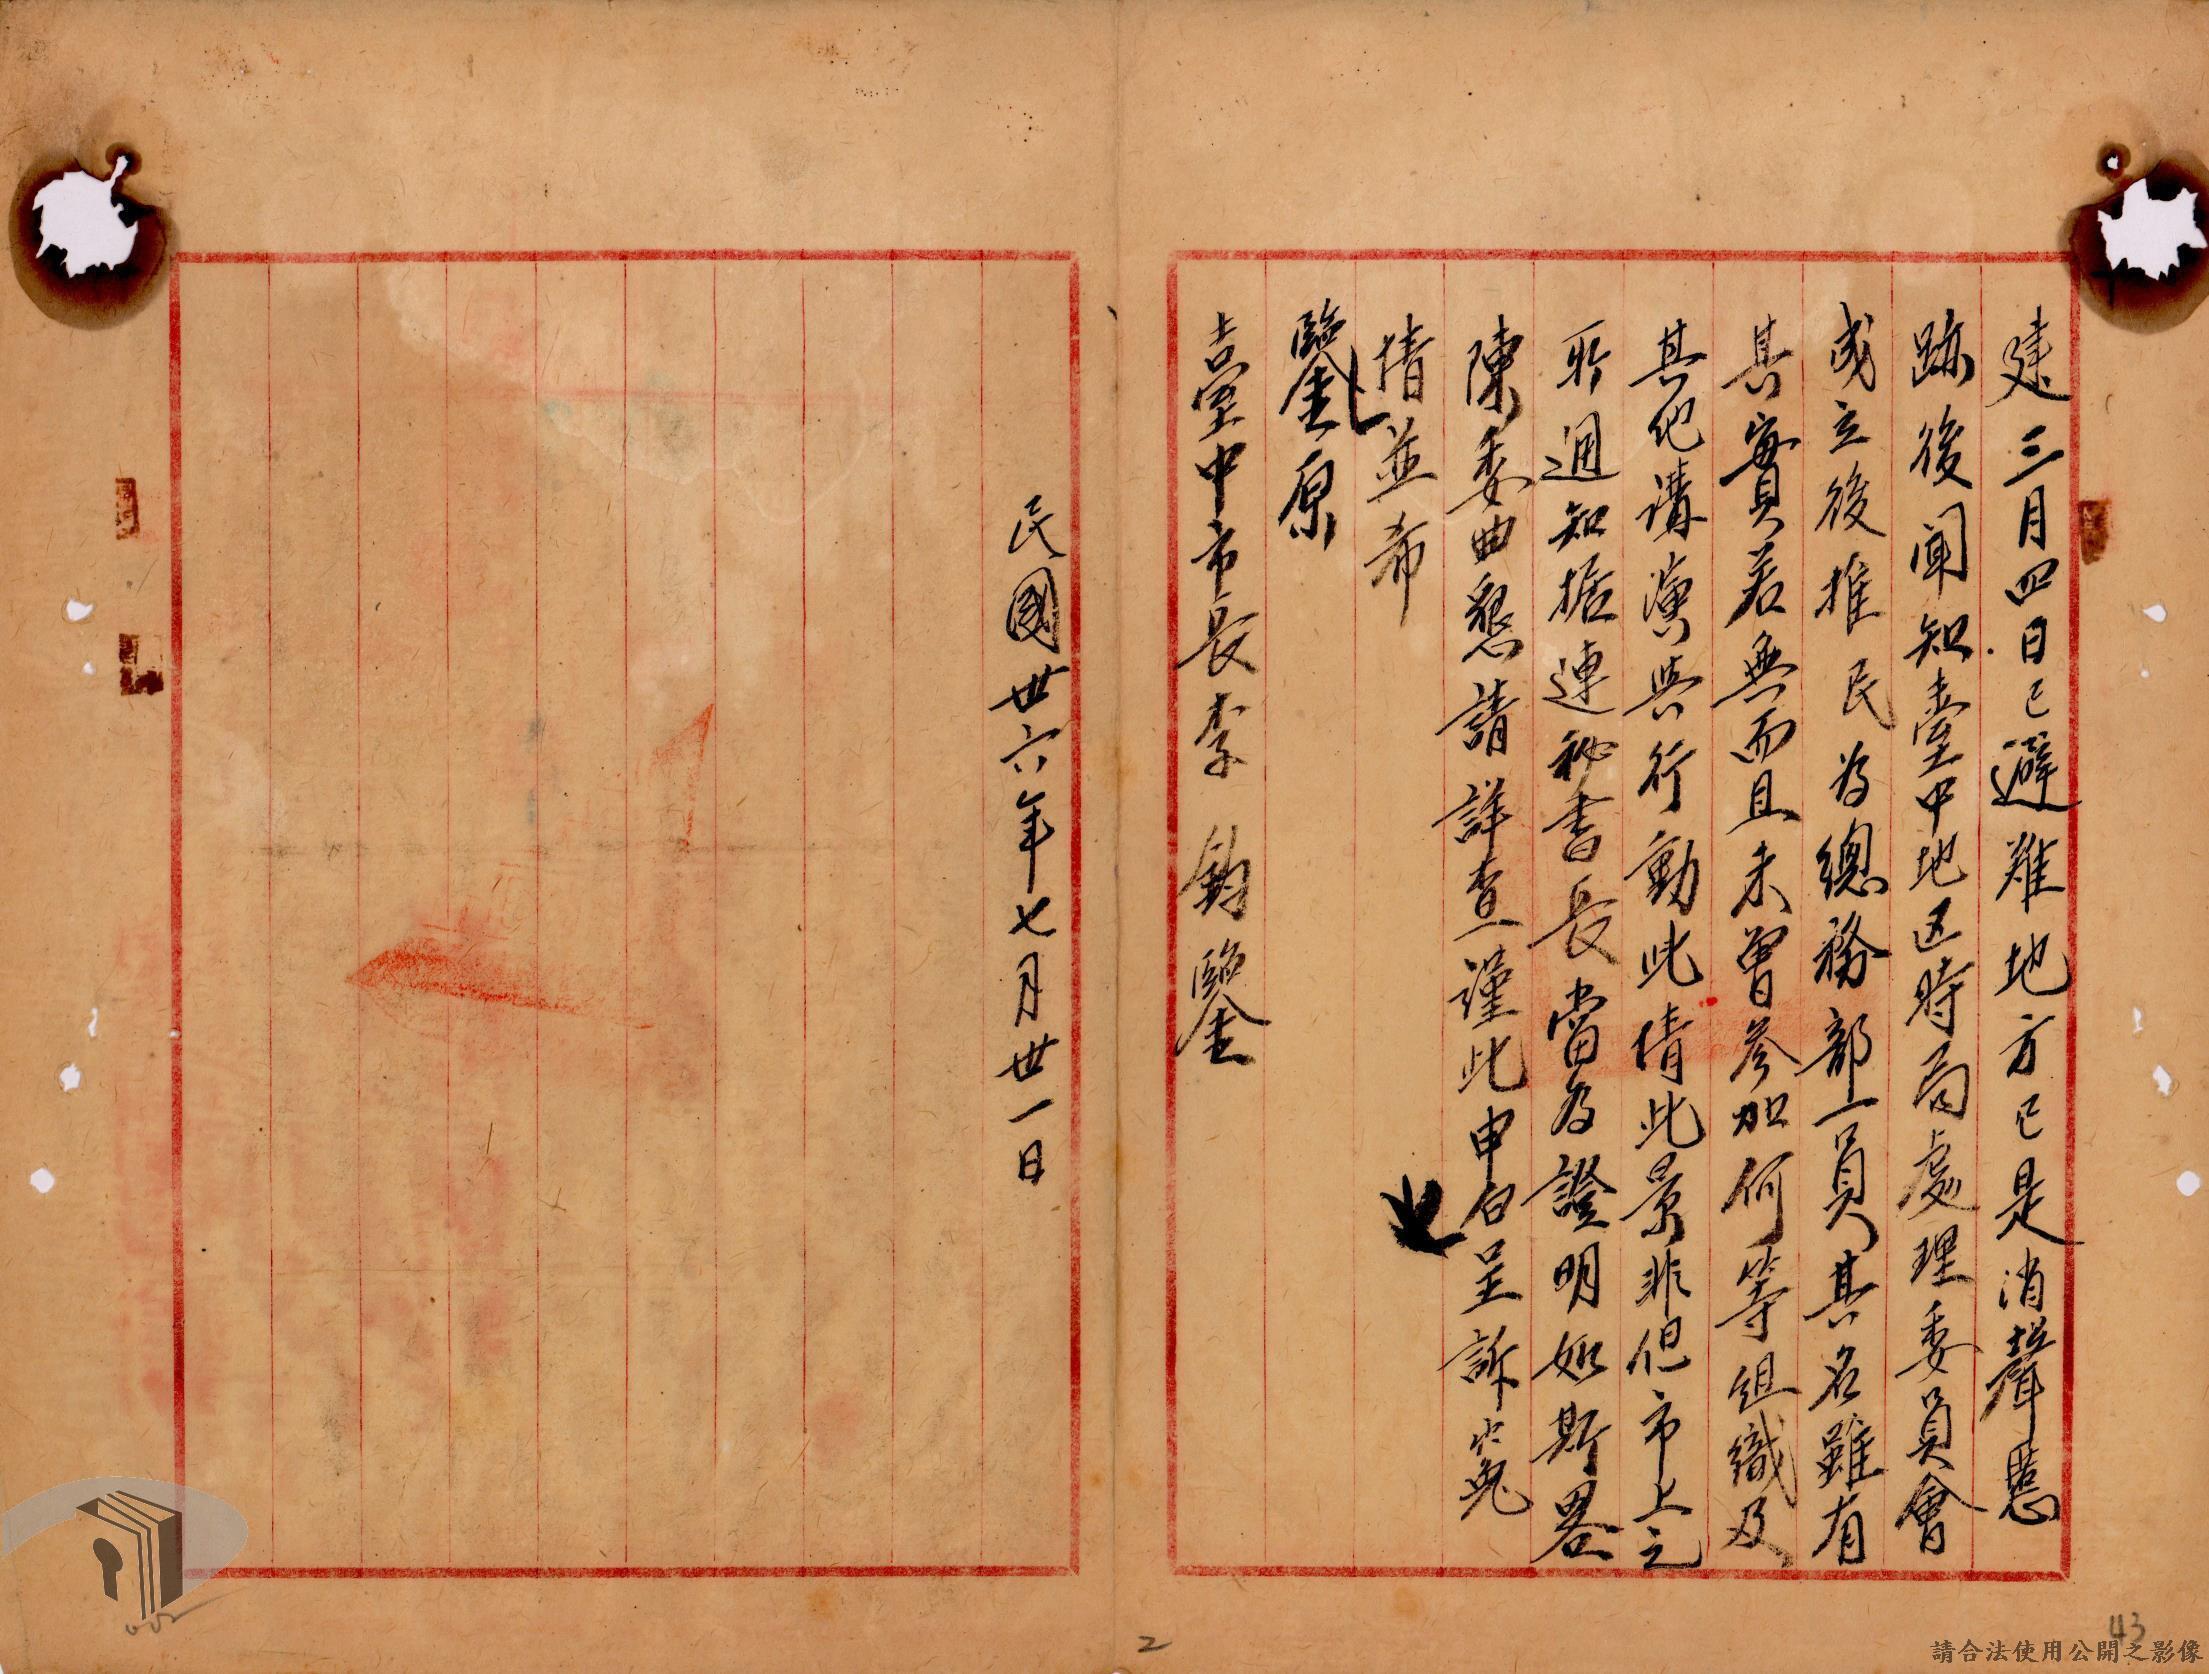 建三月四日已避難地方已是消聲慝
跡後聞知臺中地区時局處理委員會
成立後推民為總務部一員其名雖有
其實若無而且未曾參加何等組織及
其他講演與行動此情此景非但市上之
所週知據連秘書長當為證明如斯畧
陳委曲懇請詳查謹此申白呈訴冤
情並希
鑒原
臺中市長李 鈞鑒
民國卅六年七月卅一日
2
43
請合法使用公開之影像